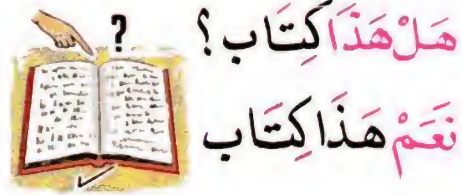 هَلْ هَذَا كِتَاب ؟
?
نَعَمْ هَذَا كِتَاب